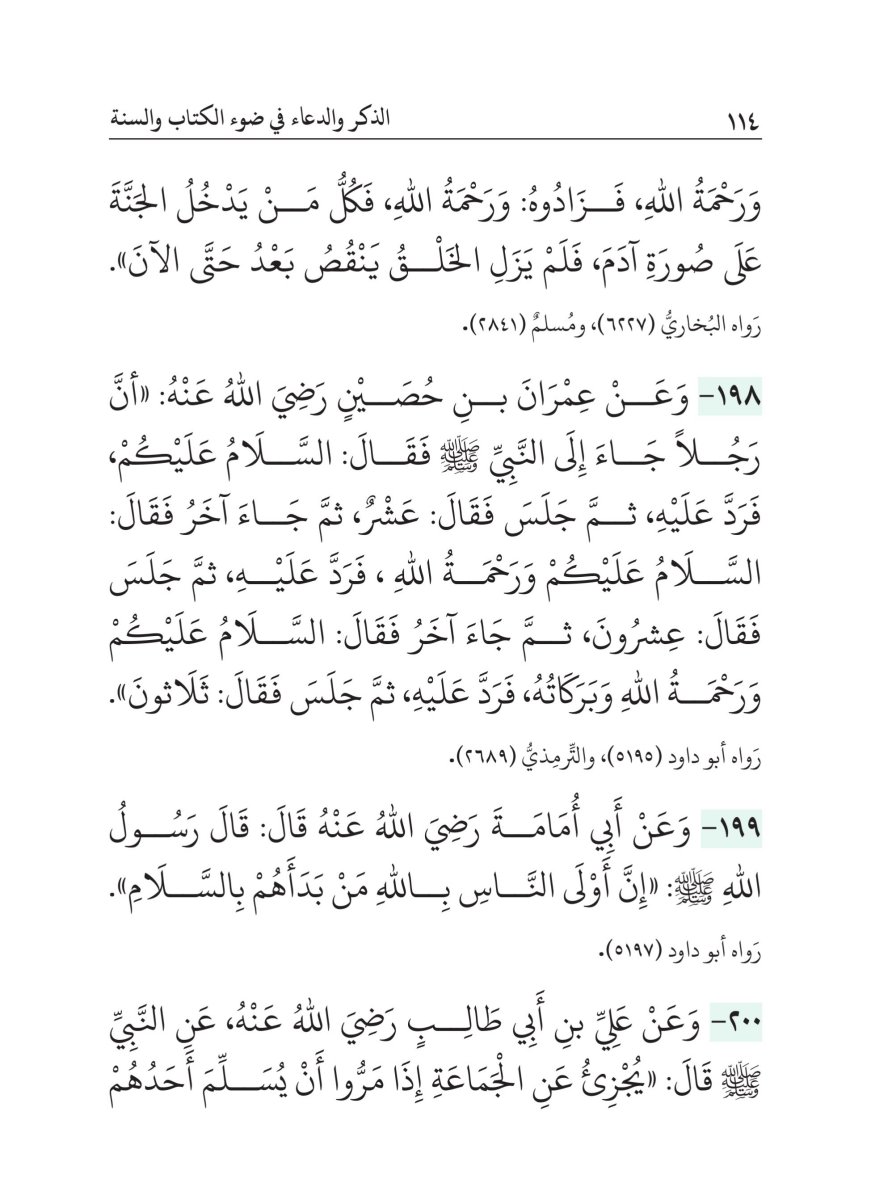 ١١٤ الذكر والدعاء في ضوء الكتاب والسنة
وَرَحْمَةُ اللهِ، فَـزَادُوهُ: وَرَحْمَةُ اللهِ، فَكُلُّ مَـنْ يَدْخُلُ الجَنَّةَ
عَلَى صُورَةِ آدَمَ، فَلَمْ يَزَلِ الخَلْـقُ يَنْقُصُ بَعْدُ حَتَّى الآنَ».
رَواه البُخاريُّ (٦٢٢٧)، ومُسلمٌ (٢٨٤١).
١٩٨- وَعَـنْ عِمْرَانَ بـنِ حُصَـيْنٍ رَضِيَ اللهُ عَنْهُ: «أنَّ
رَجُـلاً جَـاءَ إِلَى النَّبِيِّ ﷺ فَقَـالَ: السَّـلَامُ عَلَيْكُمْ،
فَرَدَّ عَلَيْهِ، ثـمَّ جَلَسَ فَقَالَ: عَشْرٌ، ثمَّ جَـاءَ آخَرُ فَقَالَ:
السَّـلَامُ عَلَيْكُمْ وَرَحْمَـةُ اللهِ ، فَرَدَّ عَلَيْـهِ، ثمَّ جَلَسَ
فَقَالَ: عِشرُونَ، ثـمَّ جَاءَ آخَرُ فَقَالَ: السَّـلَامُ عَلَيْكُمْ
وَرَحْمَـةُ اللهِ وَبَرَكَاتُهُ، فَرَدَّ عَلَيْهِ، ثمَّ جَلَسَ فَقَالَ: ثَلَاثونَ».
رَواه أبو داود (٥١٩٥)، والتِّرمِذيُّ (٢٦٨٩).
١٩٩- وَعَنْ أَبِي أُمَامَـةَ رَضِيَ اللهُ عَنْهُ قَالَ: قَالَ رَسُـولُ
اللهِ ﷺ: «إِنَّ أَوْلَى النَّـاسِ بِـاللهِ مَنْ بَدَأَهُمْ بِالسَّـلَامِ».
رَواه أبو داود (٥١٩٧).
٢٠٠- وَعَنْ عَلِيِّ بنِ أَبِي طَالِـبٍ رَضِيَ اللهُ عَنْهُ، عَنِ النَّبِيِّ
ﷺ قَالَ: «يُجْزِئُ عَنِ الْجَمَاعَةِ إِذَا مَرُّوا أَنْ يُسَـلِّمَ أَحَدُهُمْ